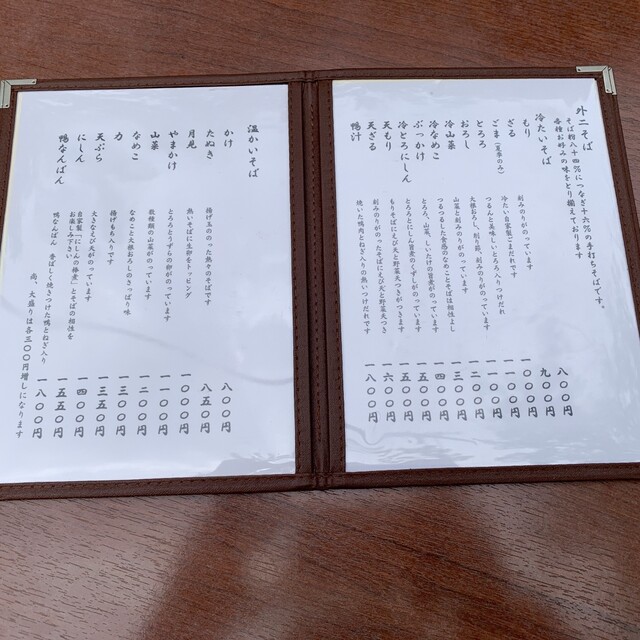 外二そば
そば粉八十四%につなぎ十六%の手打ちそばです。
各種お好みの味をとり揃えております
冷たいそば
もり 八〇〇円
ざる 刻みのりがのっています 九〇〇円
ごま(夏季のみ) 冷たい自家製ごまだれです 一〇〇〇円
とろろ つるんと美味しいとろろ入りつけだれ 一一〇〇円
おろし 大根おろし、削り節、刻みのりがのっています 一一〇〇円
冷山菜 山菜と刻みのりがのっています 一二〇〇円
冷なめこ つるつるした食感のなめことそばは相性よし 一三〇〇円
ぶっかけ とろろ、山菜、しいたけの旨煮がのっています 一四〇〇円
冷とろにしん とろろとにしん旨煮のくずしがのっています 一五〇〇円
天もり もりそばにえび天と野菜天つきます 一五〇〇円
天ざる 刻みのりがのったそばにえび天と野菜天つき 一六〇〇円
鴨汁 焼いた鴨肉とねぎ入りの熱いつけだれです 一八〇〇円
温かいそば
かけ 八〇〇円
たぬき 揚げ玉ののった熱々のそばです 八五〇円
月見 熱いそばに玉卵をトッピング 一〇〇〇円
やまかけ とろろとうずらの卵がのっています 一一〇〇円
山菜 数種類の山菜がのっています 一二〇〇円
なめこ なめこと大根おろしのさっぱり味 一三〇〇円
力 揚げもち入り 一三五〇円
天ぷら 大きなえび天がのっています 一四〇〇円
にしん 自家製「にしんの棒煮」とそばの相性を
お楽しみ下さい 一五五〇円
鴨なんばん 鴨なんばん 香ばしく焼きつけた鴨とねぎ入り 一八〇〇円
尚、大盛りは各三〇〇円増しになります